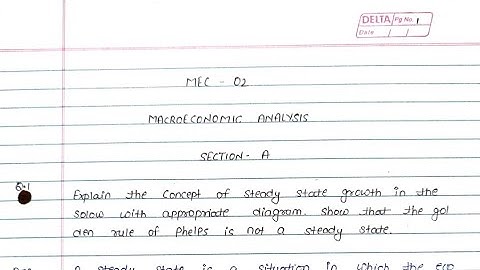 DELTA Pg No. 1
Date / /
MEC - 02
MACROECONOMIC ANALYSIS
SECTION - A
Q.1
Explain the concept of steady state growth in the
solow with appropriate diagram. Show that the gol
den rule of Phelps is not a steady state.
A steady state is a situation in which the eco